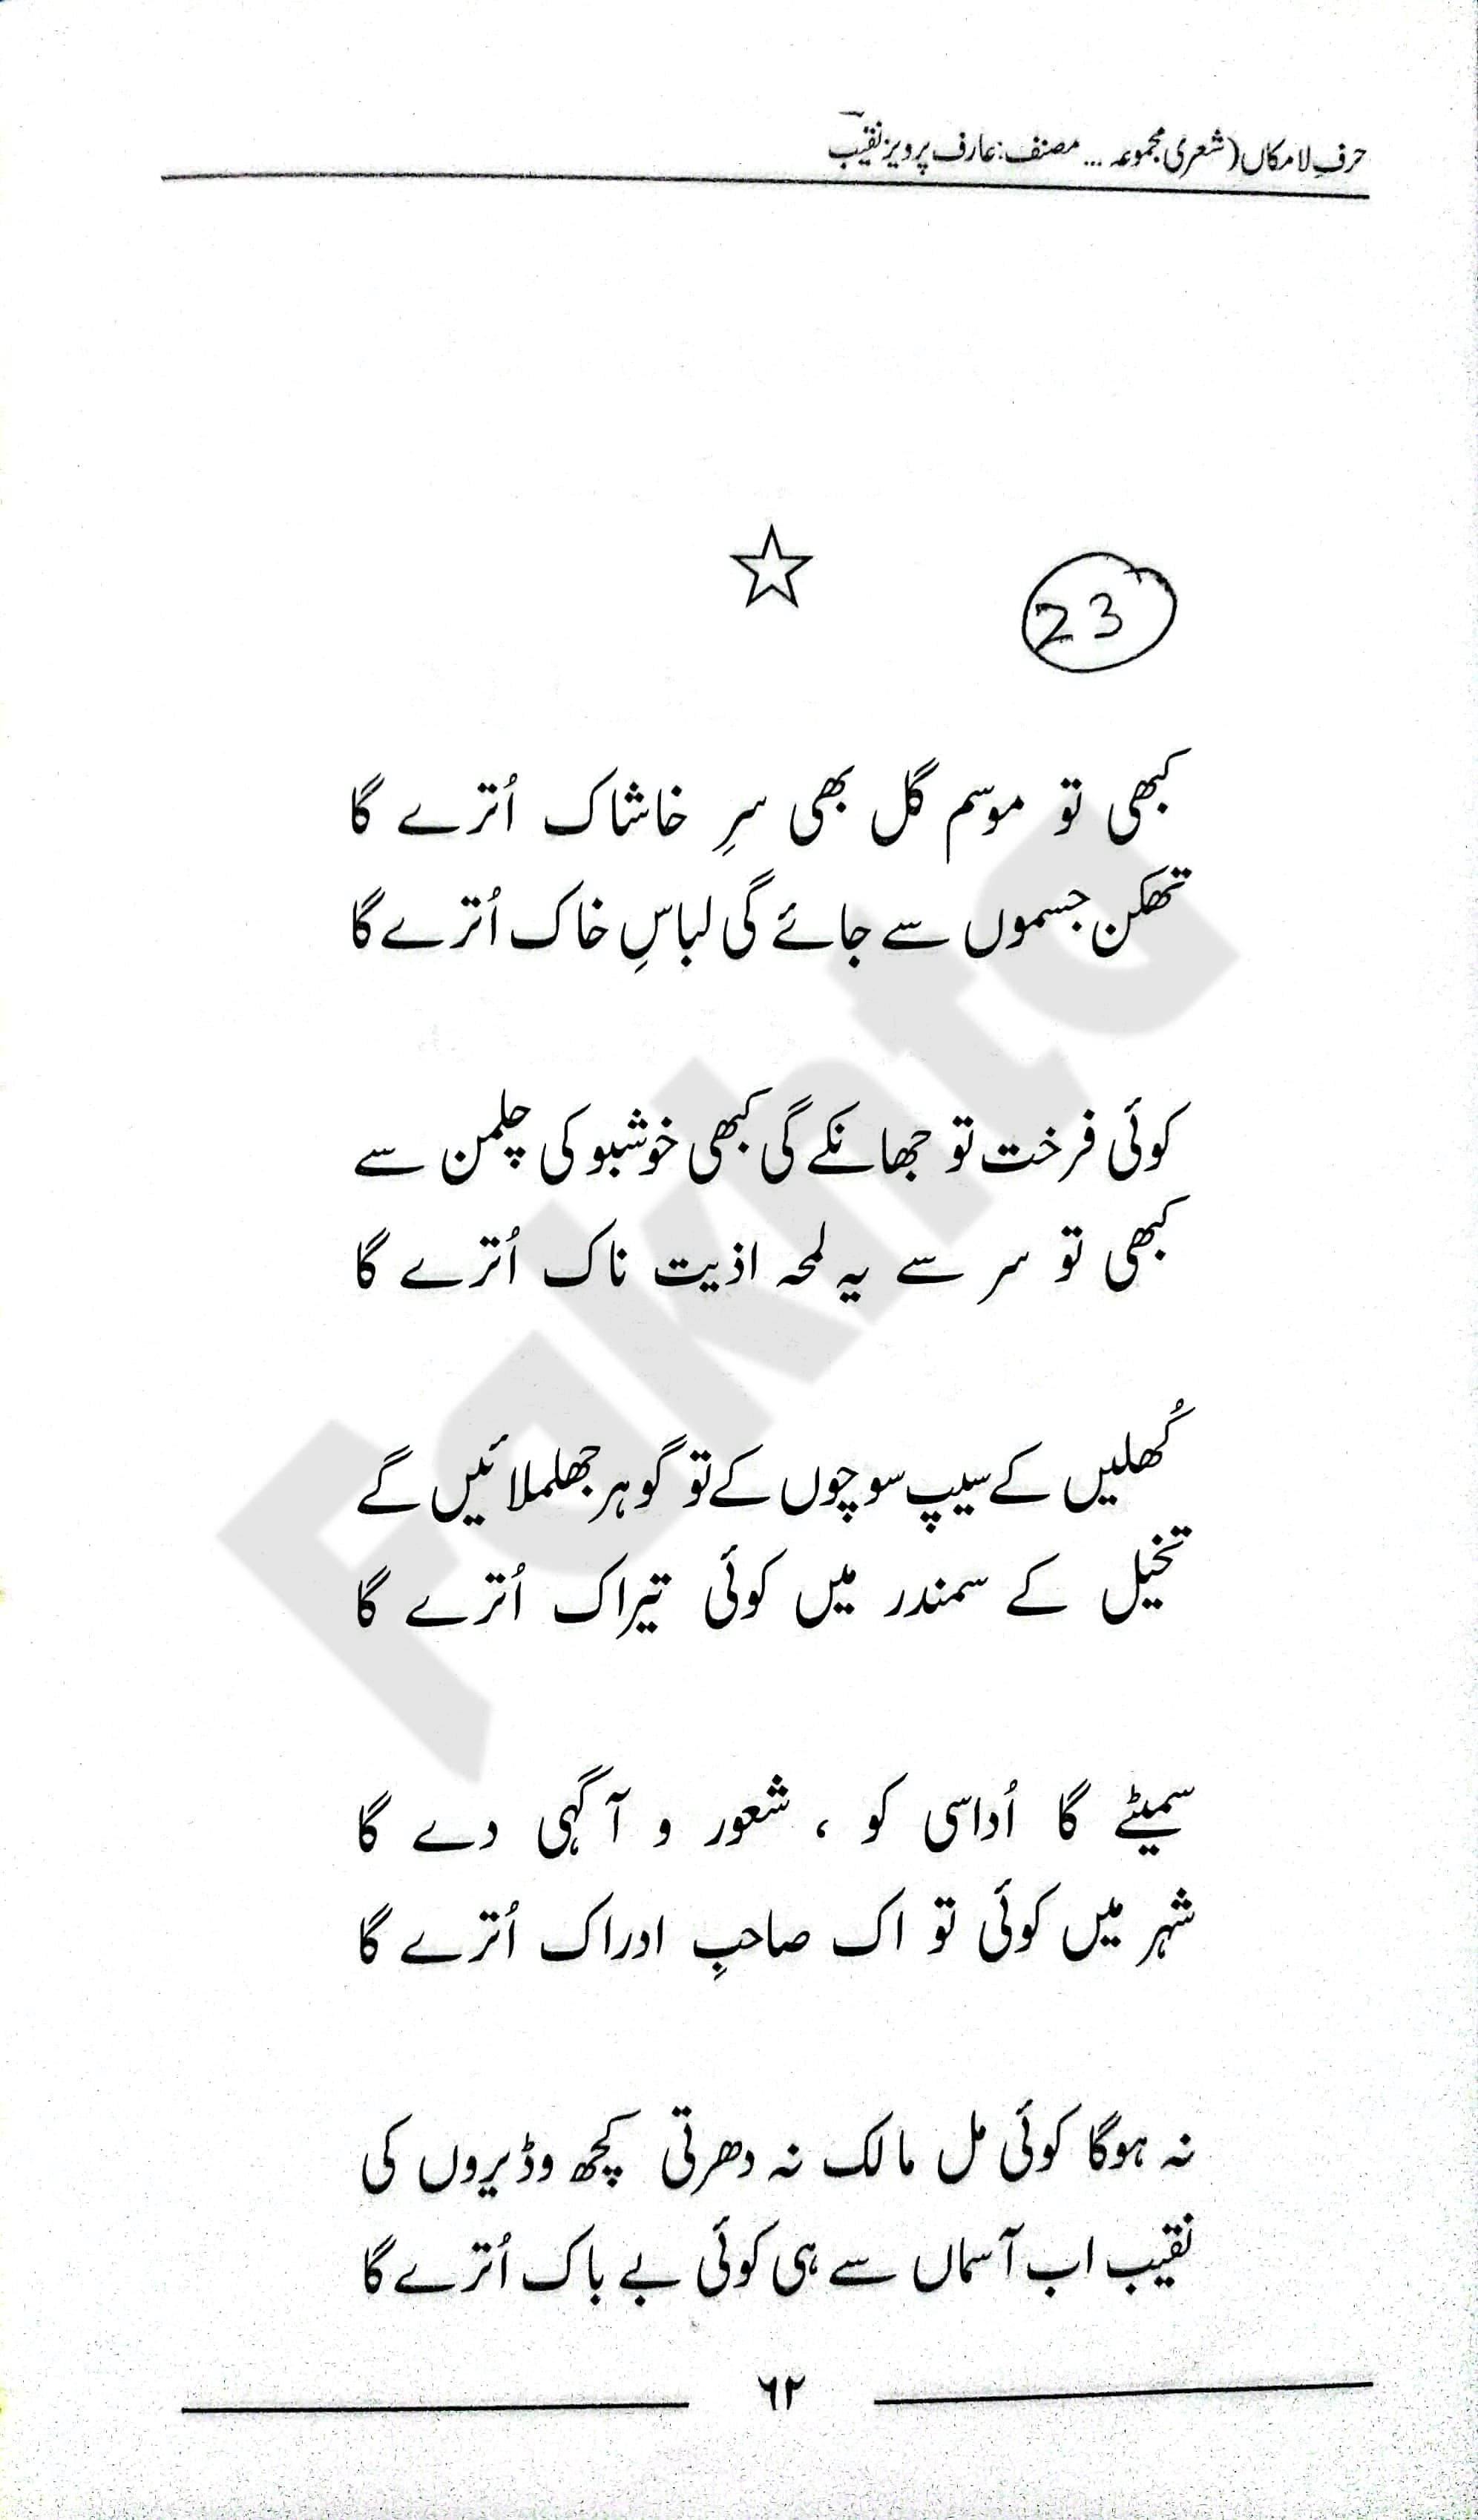 حرفِ لامکاں (شعری مجموعہ ... مصنف: عارف پرویز نقیب
☆
23
کبھی تو موسم گل بھی سرِ خاشاک اُترے گا
تھکن جسموں سے جائے گی لباسِ خاک اُترے گا
کوئی فرخت تو جھانکے گی کبھی خوشبو کی چلمن سے
کبھی تو سر سے یہ لمحہ اذیت ناک اُترے گا
کُھلیں کے سیپ سوچوں کے تو گوہر جھلملائیں گے
تخیل کے سمندر میں کوئی تیراک اُترے گا
سمیٹے گا اُداسی کو ، شعور و آگہی دے گا
شہر میں کوئی تو اک صاحبِ ادراک اُترے گا
نہ ہوگا کوئی مل مالک نہ دھرتی کچھ وڈیروں کی
نقیب اب آسماں سے ہی کوئی بے باک اُترے گا
۶۲
Fakhta